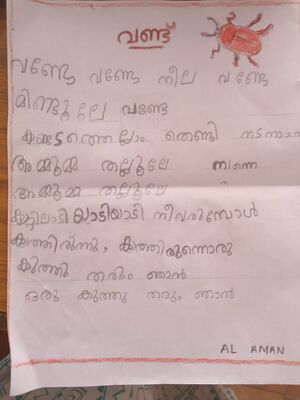 വണ്ട്
വണ്ടേ വണ്ടേ നീല വണ്ടേ
മിണ്ടൂലേ വണ്ടേ
കണ്ടടത്തെല്ലാം തെണ്ടി നടന്നാ
അമ്മൂമ്മ തല്ലൂലേ നിന്നെ
അമ്മൂമ്മ തല്ലൂലേ
കുറ്റിലാടിയാടിയാടി നീവരുമ്പോൾ
കാത്തിരുന്നു, കാത്തിരുന്നൊരു
കുത്തു തരും ഞാൻ
ഒരു കുത്തു തരും ഞാൻ
AL AMAN